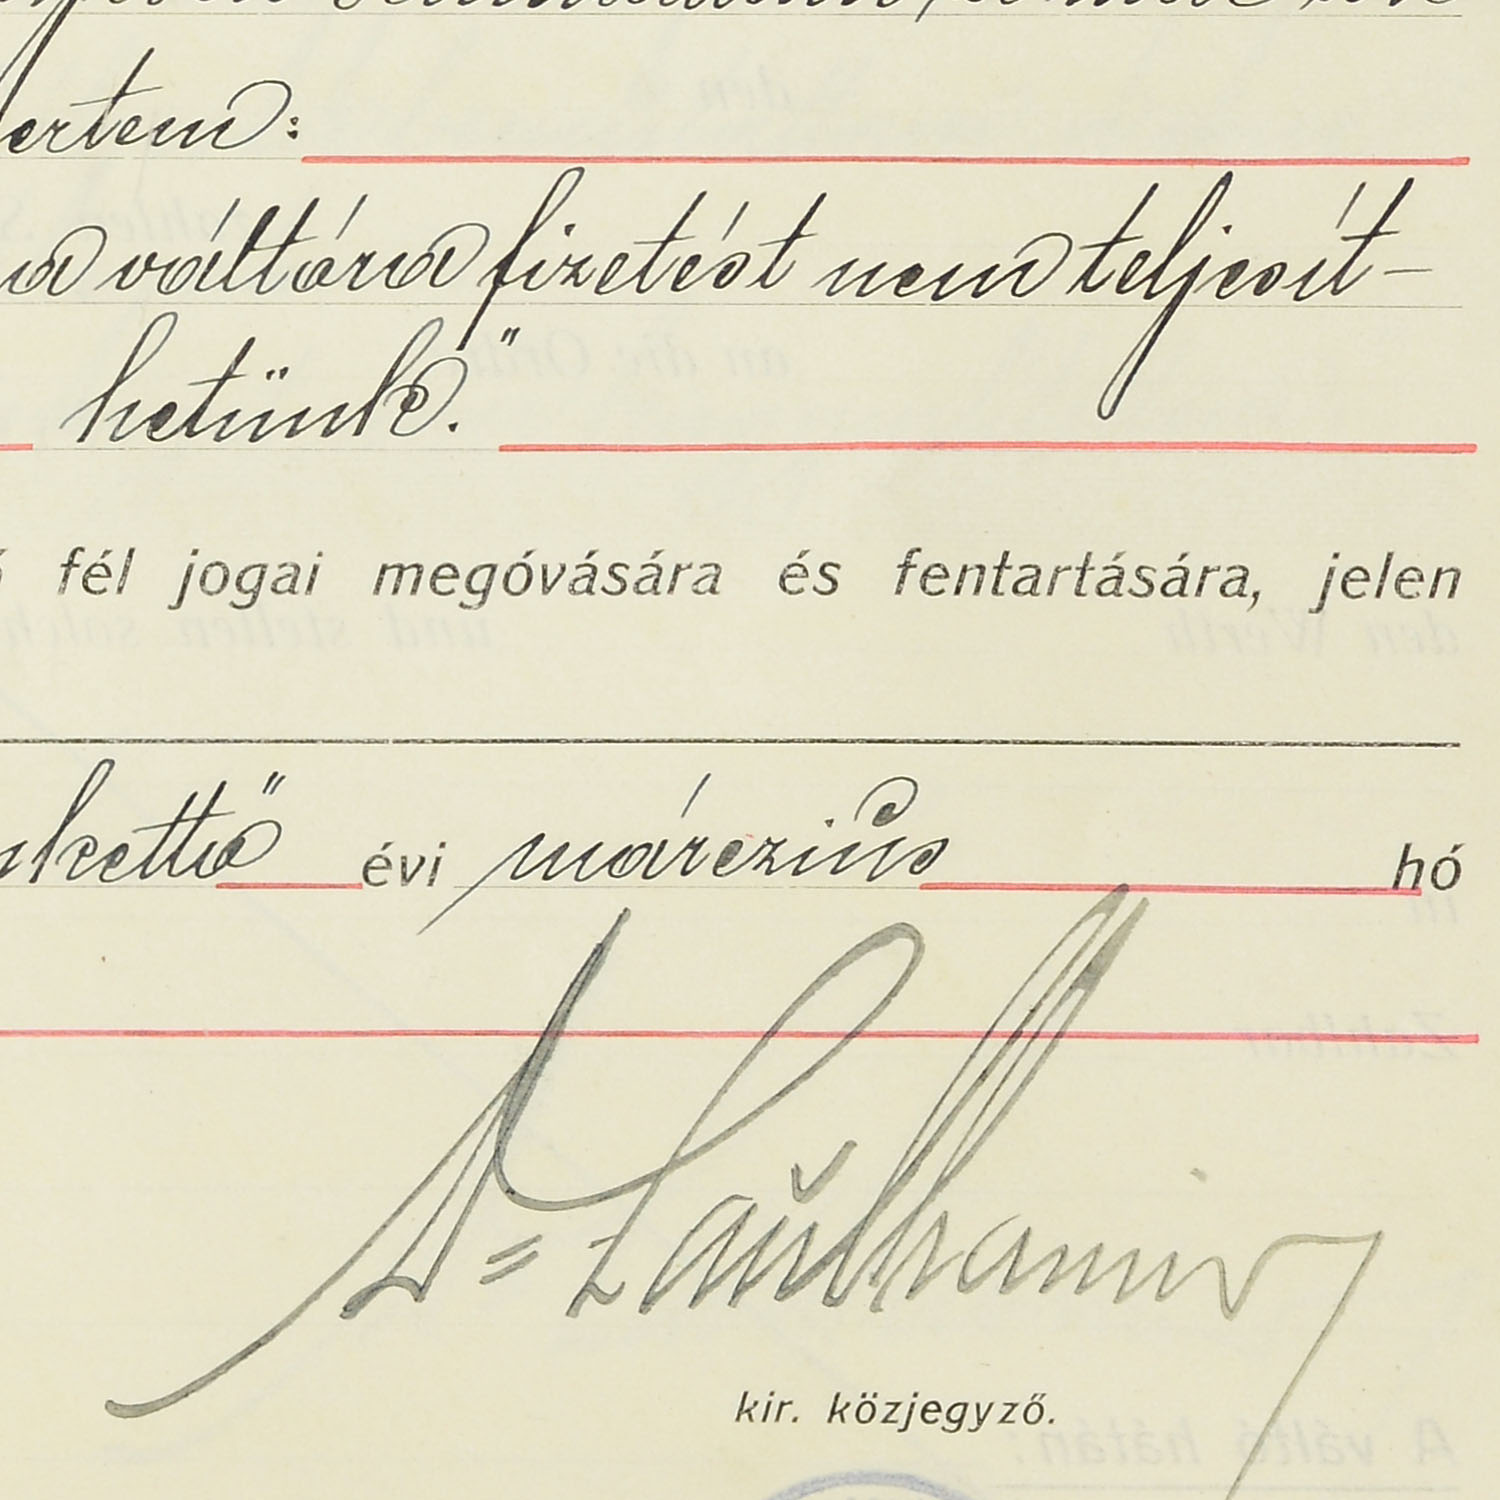 ertem:
a váltóra fizetést nem teljesít-
hetünk."
fél jogai megóvására és fentartására, jelen
kettő évi márczius hó
kir. közjegyző.